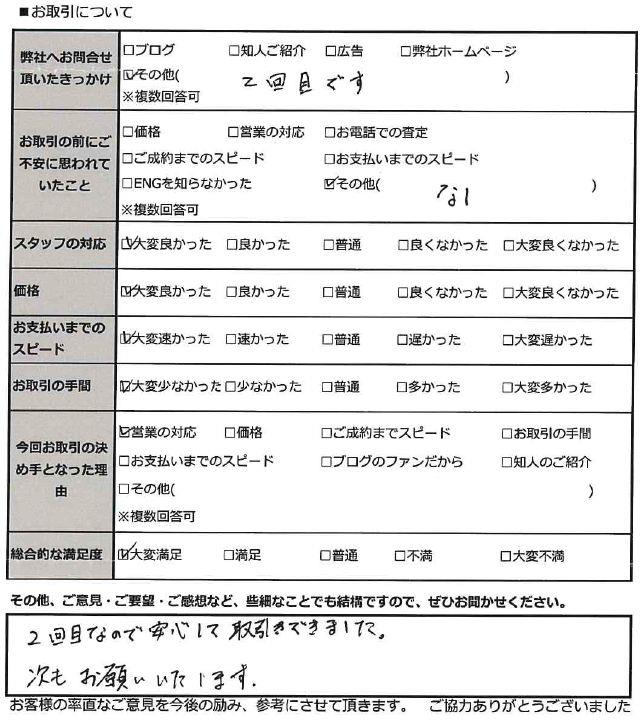 ■お取引について
弊社へお問合せ頂いたきっかけ
□ブログ □知人ご紹介 □広告 □弊社ホームページ
☑その他( 2回目です )
※複数回答可
お取引の前にご不安に思われていたこと
□価格 □営業の対応 □お電話での査定
□ご成約までのスピード □お支払いまでのスピード
□ENGを知らなかった ☑その他( なし )
※複数回答可
スタッフの対応 ☑大変良かった □良かった □普通 □良くなかった □大変良くなかった
価格 ☑大変良かった □良かった □普通 □良くなかった □大変良くなかった
お支払いまでのスピード ☑大変速かった □速かった □普通 □遅かった □大変遅かった
お取引の手間 ☑大変少なかった □少なかった □普通 □多かった □大変多かった
今回お取引の決め手となった理由
☑営業の対応 □価格 □ご成約までスピード □お取引の手間
□お支払いまでのスピード □ブログのファンだから □知人のご紹介
□その他( )
※複数回答可
総合的な満足度 ☑大変満足 □満足 □普通 □不満 □大変不満
その他、ご意見・ご要望・ご感想など、些細なことでも結構ですので、ぜひお聞かせください。
2回目なので安心して取引きできました。
次もお願いいたします.
お客様の率直なご意見を今後の励み、参考にさせて頂きます。 ご協力ありがとうございました